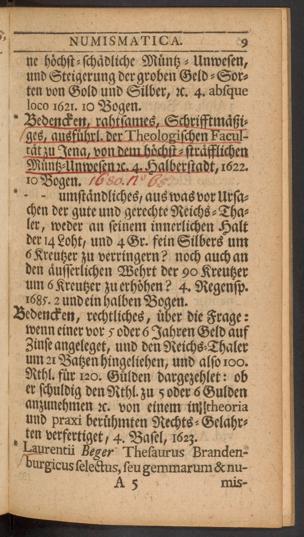 NUMISMATICA. 9
ne höchst-schädliche Müntz-Unwesen,
und Steigerung der groben Geld-Sor-
ten von Gold und Silber, ꝛc. 4. absque
loco 1621. 10 Bogen.
* Bedencken, rahtsames, Schrifftmäßi-
ges, ausführl. der Theologischen Facul-
tät zu Jena, von dem höchst-sträfflichen
Müntz-Unwesen ꝛc. 4. Halberstadt, 1622.
10 Bogen. 1680. n
* - - umständliches, aus was vor Ursa-
chen der gute und gerechte Reichs-Tha-
ler, weder an seinem innerlichen Halt
der 14 Loht, und 4 Gr. fein Silbers um
6 Kreutzer zu verringern? noch auch an
den äusserlichen Wehrt der 90 Kreutzer
um 6 Kreutzer zu erhöhen? 4. Regensp.
1685. 2 und ein halben Bogen.
Bedencken, rechtliches, über die Frage:
wenn einer vor 5 oder 6 Jahren Geld auf
Zinse angeleget, und den Reichs-Thaler
um 21 Batzen hingeliehen, und also 100.
Rthl. für 120. Gülden dargezehlet: ob
er schuldig den Rthl. zu 5 oder 6 Gulden
anzunehmen ꝛc. von einem in theoria
und praxi berühmten Rechts-Gelahr-
ten verfertiget, 4. Basel, 1623.
* Laurentii Beger Thesaurus Branden-
burgicus selectus, seu gemmarum & nu-
A 5 mis-